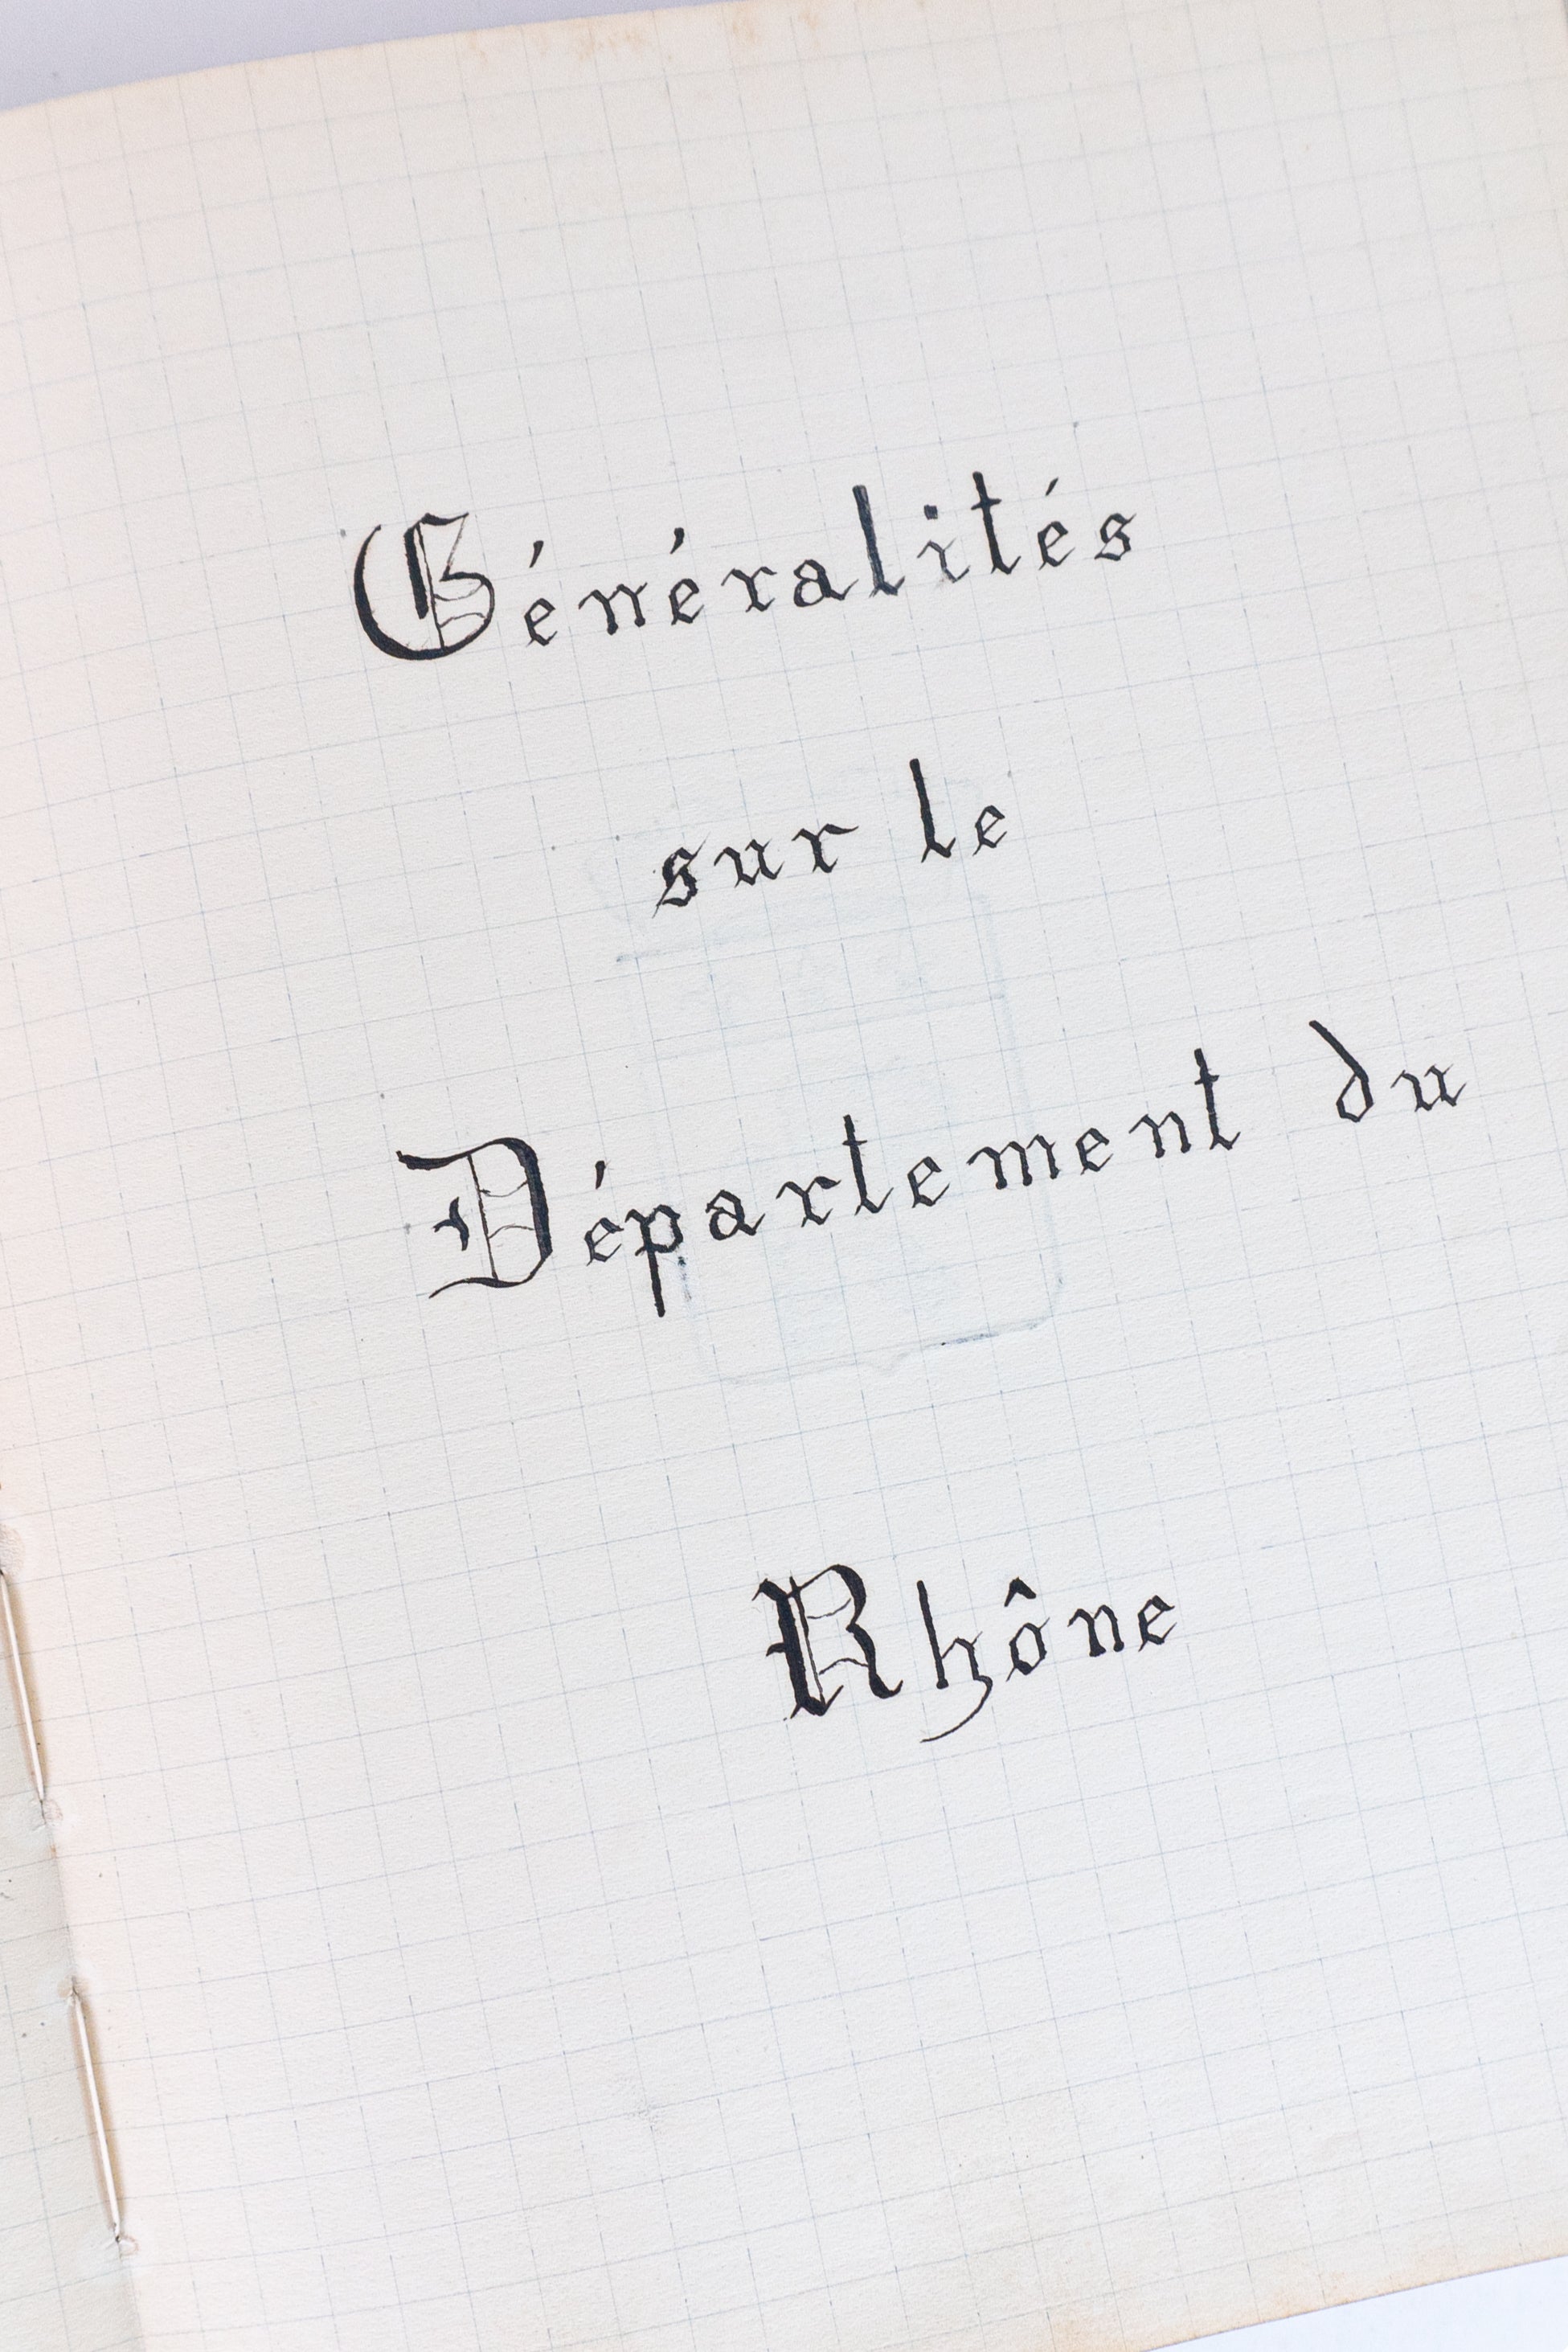 Généralités
sur le
Département du
Rhône